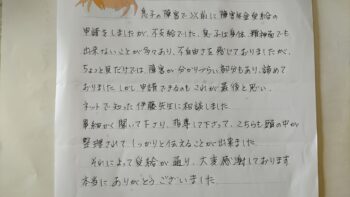 息子の障害で以前に障害年金受給の
申請をしましたが、不支給でした。息子は身体、精神面でも
出来ないことが多々あり、不自由さを感じておりましたが、
ちょっと見だけでは、障害が分かりづらい部分もあり、諦めて
おりました。しかし申請できるのもこれが最後と思い、
ネットで知った伊藤先生に相談しました
事細かく聞いて下さり、指導して下さって、こちらも頭の中が
整理されて、しっかりと伝えることが出来ました。
それによって受給が通り、大変感謝しております
本当にありがとうございました